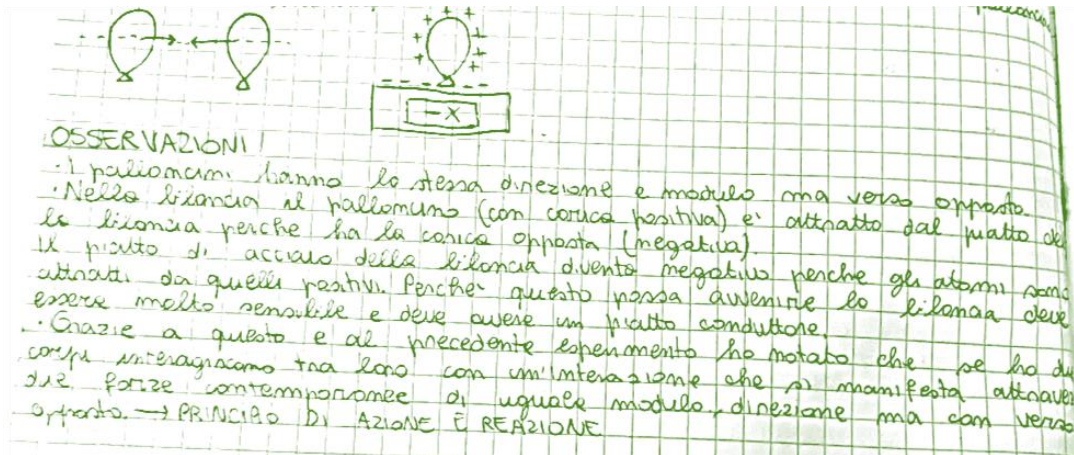 palloncini
+ + + + + + + + +
- - - - - -
-X
OSSERVAZIONI
· I palloncini hanno la stessa direzione e modulo ma verso opposto.
· Nella bilancia il palloncino (con carica positiva) e' attratto dal piatto del
la bilancia perche ha la carica opposta (negativa).
Il piatto di acciaio della bilancia diventa negativo perche gli atomi sono
attratti da quelli positivi. Perche' questo possa avvenire la bilancia deve
essere molto sensibile e deve avere un piatto conduttore.
· Grazie a questo e al precedente esperimento ho notato che se ho du
corpi interagiscono tra loro con un'interazione che si manifesta attraver
due forze contemporanee di uguale modulo, direzione ma con verso
opposto. → PRINCIPIO DI AZIONE E REAZIONE